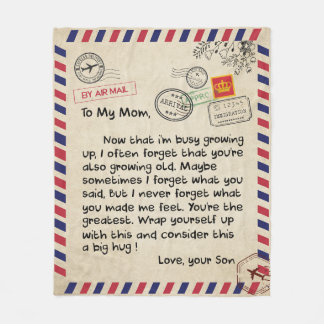 BY AIR MAIL
ARRIVAL
PRC
12345
IMMIGRATION
To My Mom,
Now that i'm busy growing
up, I often forget that you're
also growing old. Maybe
sometimes I forget what you
said, but I never forget what
you made me feel. You're the
greatest. Wrap yourself up
with this and consider this
a big hug !
Love, your Son